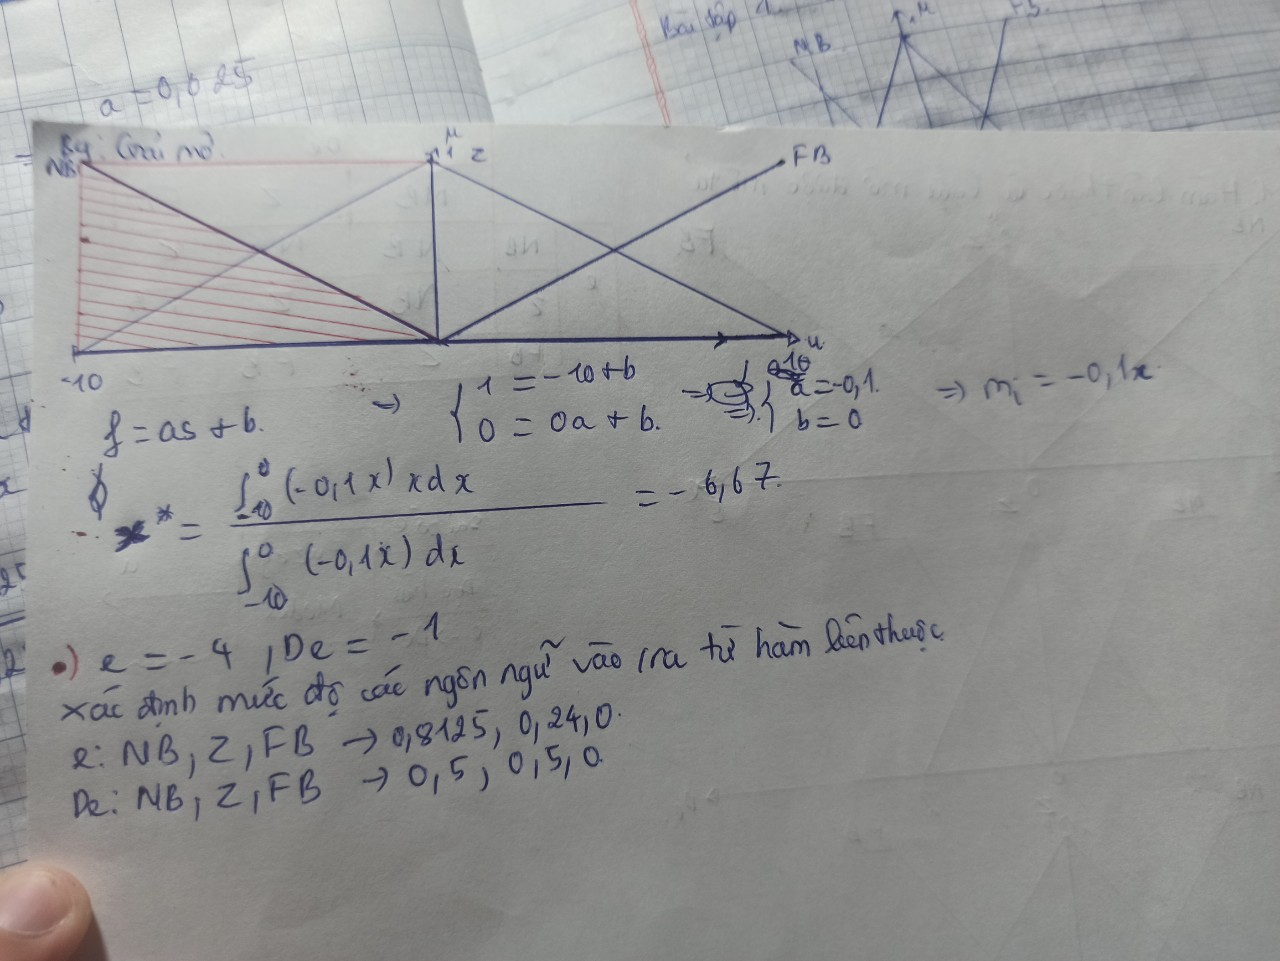 Bài tập 1.
NB
μ
FB.
a = 0,625
B4: Giải mờ.
NB
μ
1 Z
FB
-10
10
u
f = as + b.
=> { 1 = -10 + b
0 = 0a + b.
=> { a = -0,1.
b = 0
=> mi = -0,1x
x* = ∫ 0 -10 (-0,1x) x dx / ∫ 0 -10 (-0,1x) dx = - 6,67.
•) e = - 4 , De = - 1
xác định mức độ các ngôn ngữ vào ra từ hàm liên thuộc
e: NB, Z, FB → 0,8125, 0,24, 0.
De: NB, Z, FB → 0,5, 0,5, 0.